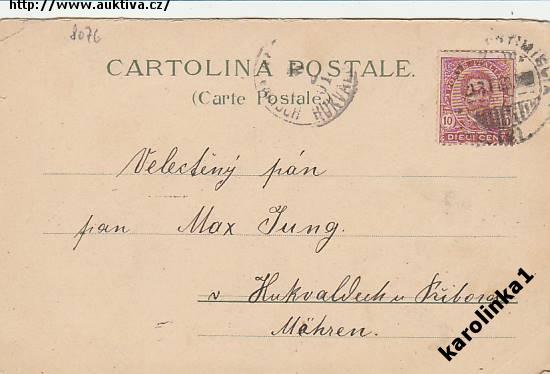 http://www.auktiva.cz/
8076
CARTOLINA POSTALE.
(Carte Postale)
HUKVALDY
10
DIECI CENT
Velectěný pán
pan Max Jung.
v Hukvaldech u Příbora
Mähren.
karolinka1